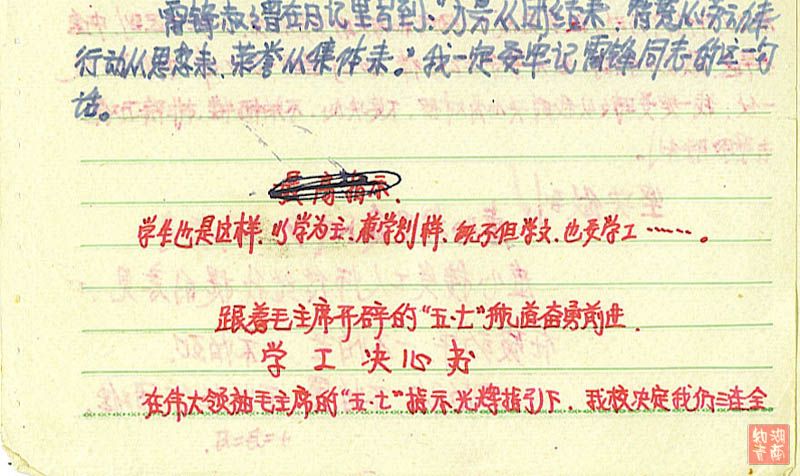 雷锋同志曾在日记里写到："力量从团结来,智慧从劳动来
行动从思想来,荣誉从集体来。"我一定要牢记雷锋同志的这一句
话。
最高指示.
学生也是这样,以学为主,兼学别样,既不但学文,也要学工……。
跟着毛主席开辟的"五·七"航道奋勇前进.
学工决心书
在伟大领袖毛主席的"五·七"指示光辉指引下,我校决定我们三连全